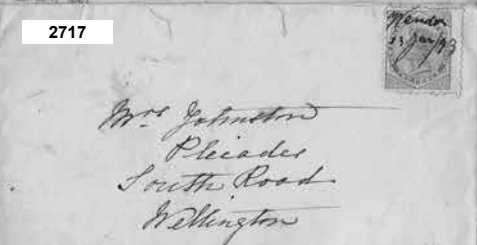 2717
Mendor
23 Jan/93
Mrs Johnston
Pleiades
South Road
Wellington